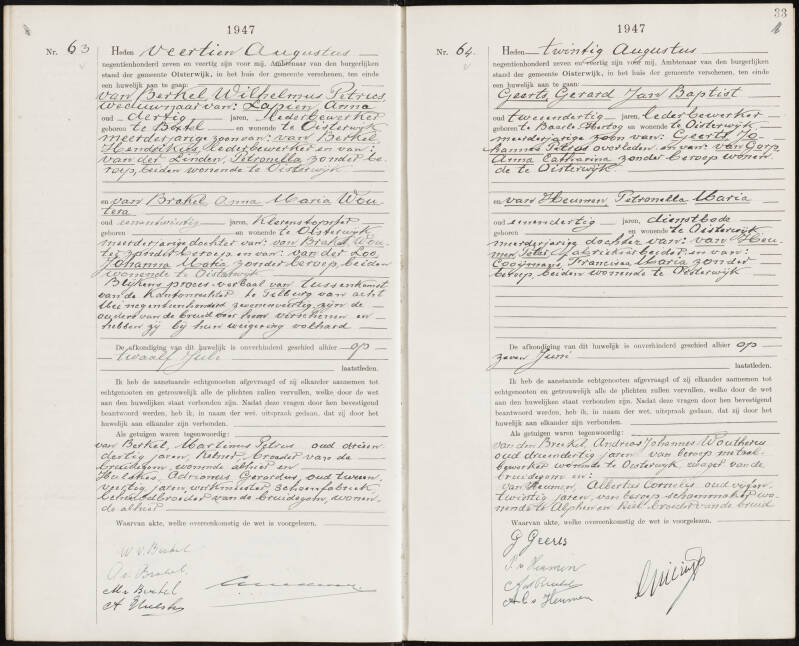 1947
Nr. 63 Heden veertien Augustus
negentienhonderd zeven en veertig zijn voor mij, Ambtenaar van den burgerlijken
stand der gemeente Oisterwijk, in het huis der gemeente verschenen, ten einde
een huwelijk aan te gaan:
van Berkel, Wilhelmus Petrus,
weduwnaar van: Lapien, Anna
oud dertig jaren, lederbewerker
geboren te Boxtel en wonende te Oisterwijk
meerderjarige zoon van: van Berkel
Hendrikus, lederbewerker en van:
van der Linden, Petronella zonder be-
roep, beiden wonende te Oisterwijk
en van Brakel Anna Maria Wou-
tera
oud eenentwintig jaren,
geboren en wonende te Oisterwijk
meerderjarige dochter van: van Brakel, Wou-
ter zonder beroep en van: van der Loo,
Johanna Maria zonder beroep, beiden
wonende te Oisterwijk
Blijkens proces-verbaal van tusschenkomst
van de Kantonrechter te Tilburg van acht
Mei negentienhonderd zevenenveertig, zijn de
ouders van de bruid voor hem verschenen en
hebben zij bij hun weigering volhard
De afkondiging van dit huwelijk is onverhinderd geschied alhier op
twaalf Juli
laatstleden.
Ik heb de aanstaande echtgenooten afgevraagd of zij elkander aannemen tot
echtgenooten en getrouwelijk alle de plichten zullen vervullen, welke door de wet
aan den huwelijken staat verbonden zijn. Nadat deze vragen door hen bevestigend
beantwoord werden, heb ik, in naam der wet, uitspraak gedaan, dat zij door het
huwelijk aan elkander zijn verbonden.
Als getuigen waren tegenwoordig:
van Berkel, Martinus Petrus oud drieën-
dertig jaren, kelner, broeder van de
bruidegom, wonende alhier en
Hulskes, Adrianus Gerardus, oud tweeën-
veertig jaren werkmeester schoenfabriek,
behuwdbroeder van de bruidegom, wonen-
de alhier
Waarvan akte, welke overeenkomstig de wet is voorgelezen.
W v. Berkel
A v Brakel.
M v Berkel
A Hulskes
33
1947
Nr. 64. Heden twintig Augustus
negentienhonderd zeven en veertig zijn voor mij, Ambtenaar van den burgerlijken
stand der gemeente Oisterwijk, in het huis der gemeente verschenen, ten einde
een huwelijk aan te gaan:
Geerts, Gerard Jan Baptist
oud tweeendertig jaren, lederbewerker
geboren te Baarle-Hertog en wonende te Oisterwijk
meerderjarige zoon van: Geerts, Jo-
hannes Petrus overleden en van: van Gorp,
Anna Catharina zonder beroep wonen-
de te Oisterwijk
en van Heumen, Petronella Maria
oud eenendertig jaren, dienstbode
geboren en wonende te Oisterwijk
meerderjarige dochter van: van Heu-
men, Peter fabrieksarbeider en van:
Cooijmans, Francisca Maria zonder
beroep, beiden wonende te Oisterwijk
De afkondiging van dit huwelijk is onverhinderd geschied alhier op
zeven Juni
laatstleden.
Ik heb de aanstaande echtgenooten afgevraagd of zij elkander aannemen tot
echtgenooten en getrouwelijk alle de plichten zullen vervullen, welke door de wet
aan den huwelijken staat verbonden zijn. Nadat deze vragen door hen bevestigend
beantwoord werden, heb ik, in naam der wet, uitspraak gedaan, dat zij door het
huwelijk aan elkander zijn verbonden.
Als getuigen waren tegenwoordig:
van den Breekel, Andreas Johannes Woutherus
oud drieendertig jaren van beroep metaal-
bewerker wonende te Oosterwijk, zwager van de
bruidegom en:
van Heumen, Albertus Cornelis oud negen-
twintig jaren, van beroep schoenmaker wo-
nende te Alphen en Riel, broeder van de bruid
Waarvan akte, welke overeenkomstig de wet is voorgelezen.
G Geerts
P. v Heumen
A. C. v Heumen